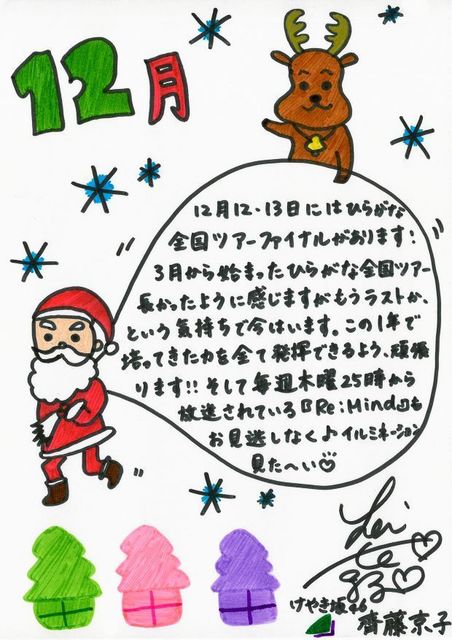 12月
12月12・13日にはひらがな
全国ツアーファイナルがあります!
3月から始まったひらがな全国ツアー
長かったように感じますがもうラストか、
という気持ちで今はいます。この1年で
培ってきた力を全て発揮できるよう、頑張
ります!!そして毎週木曜25時から
放送されている『Re:Mind』も
お見逃しなく♪イルミネーション
見たへい♡
けやき坂46
齊藤京子